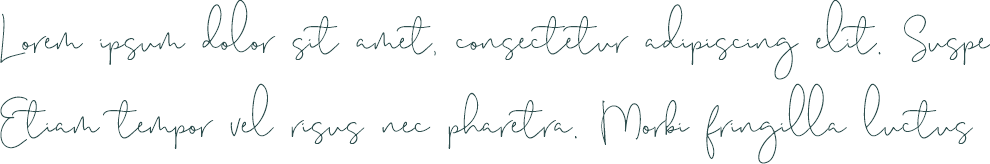 Lorem ipsum dolor sit amet, consectetur adipiscing elit. Suspe
Etiam tempor vel risus nec pharetra. Morbi fringilla luctus